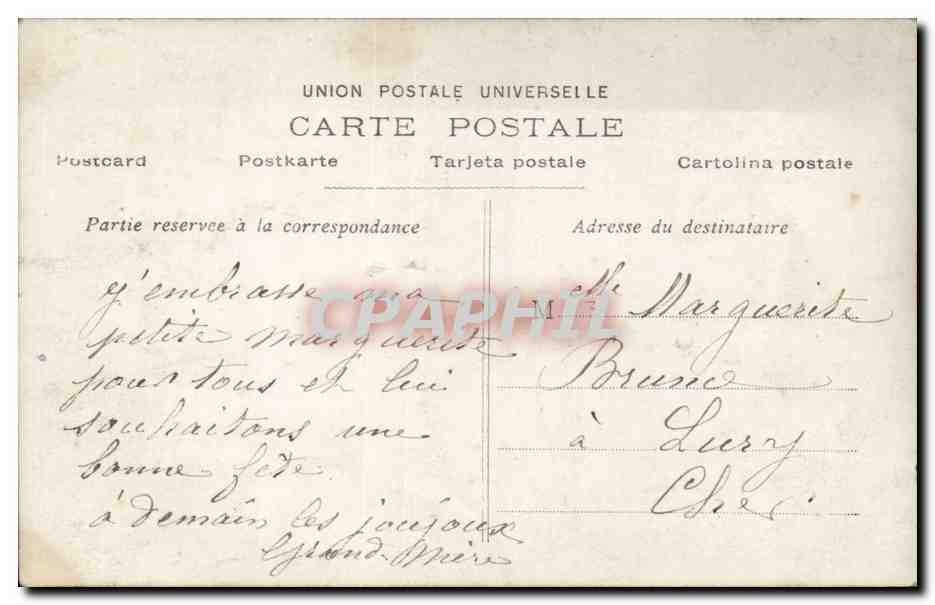 UNION POSTALE UNIVERSELLE
CARTE POSTALE
Postcard Postkarte Tarjeta postale Cartolina postale
Partie reservee à la correspondance
Adresse du destinataire
CPAPHIL
j'embrasse ma
petite marguerite
pour tous et lui
souhaitons une
bonne fête
à demain les joujoux
Grand-Mère
Melle Marguerite
Brune
à Lury
Cher